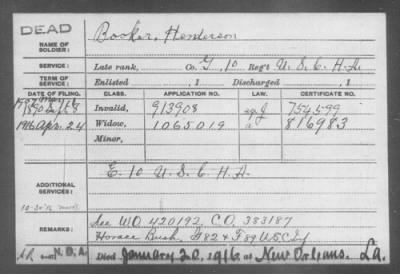 DEAD
NAME OF SOLDIER:
Booker, Henderson
SERVICE:
Late rank, Co. G, 10 Reg't U.S.C.H.A.
TERM OF SERVICE:
Enlisted , 1 Discharged , 1
DATE OF FILING. CLASS. APPLICATION NO. LAW. CERTIFICATE NO.
Invalid, 913908 754599
1916 Apr. 24 Widow, 1065019 816983
Minor,
ADDITIONAL SERVICES:
E. 10 U.S.C.H.A.
REMARKS:
See WO 420192, CO, 383187
Horace Bush, G82 & F89 USC Inf
Died January 20, 1916, at New Orleans. La.
N.O.A.